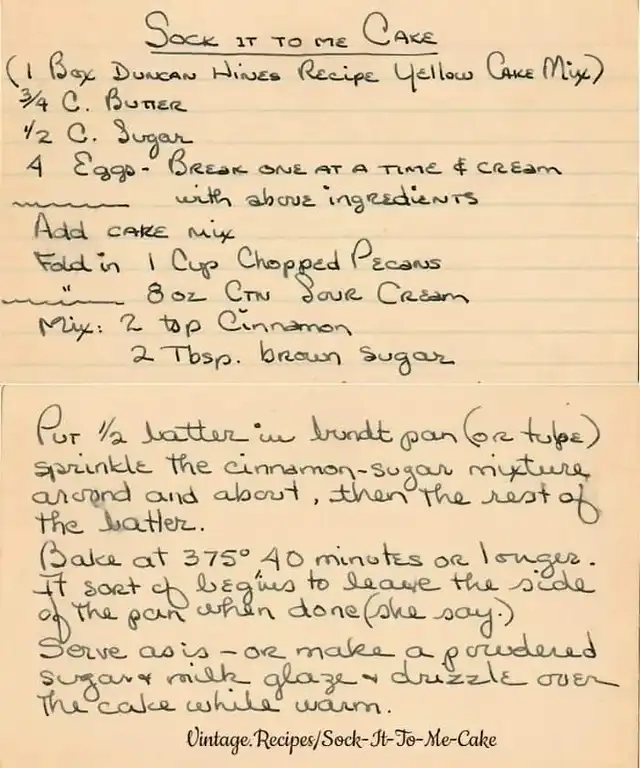 Sock it to me Cake
(1 Box Duncan Hines Recipe Yellow Cake Mix)
3/4 C. Butter
1/2 C. Sugar
4 Eggs - Break one at a time & cream
with above ingredients
Add cake mix
Fold in 1 Cup Chopped Pecans
" 8 oz Ctn Sour Cream
Mix: 2 tsp Cinnamon
2 Tbsp. brown sugar
Put 1/2 batter in bundt pan (or tube)
sprinkle the cinnamon-sugar mixture
around and about, then the rest of
the batter.
Bake at 375° 40 minutes or longer.
It sort of begins to leave the side
of the pan when done (she say.)
Serve as is - or make a powdered
sugar & milk glaze & drizzle over
the cake while warm.
Vintage.Recipes/Sock-It-To-Me-Cake